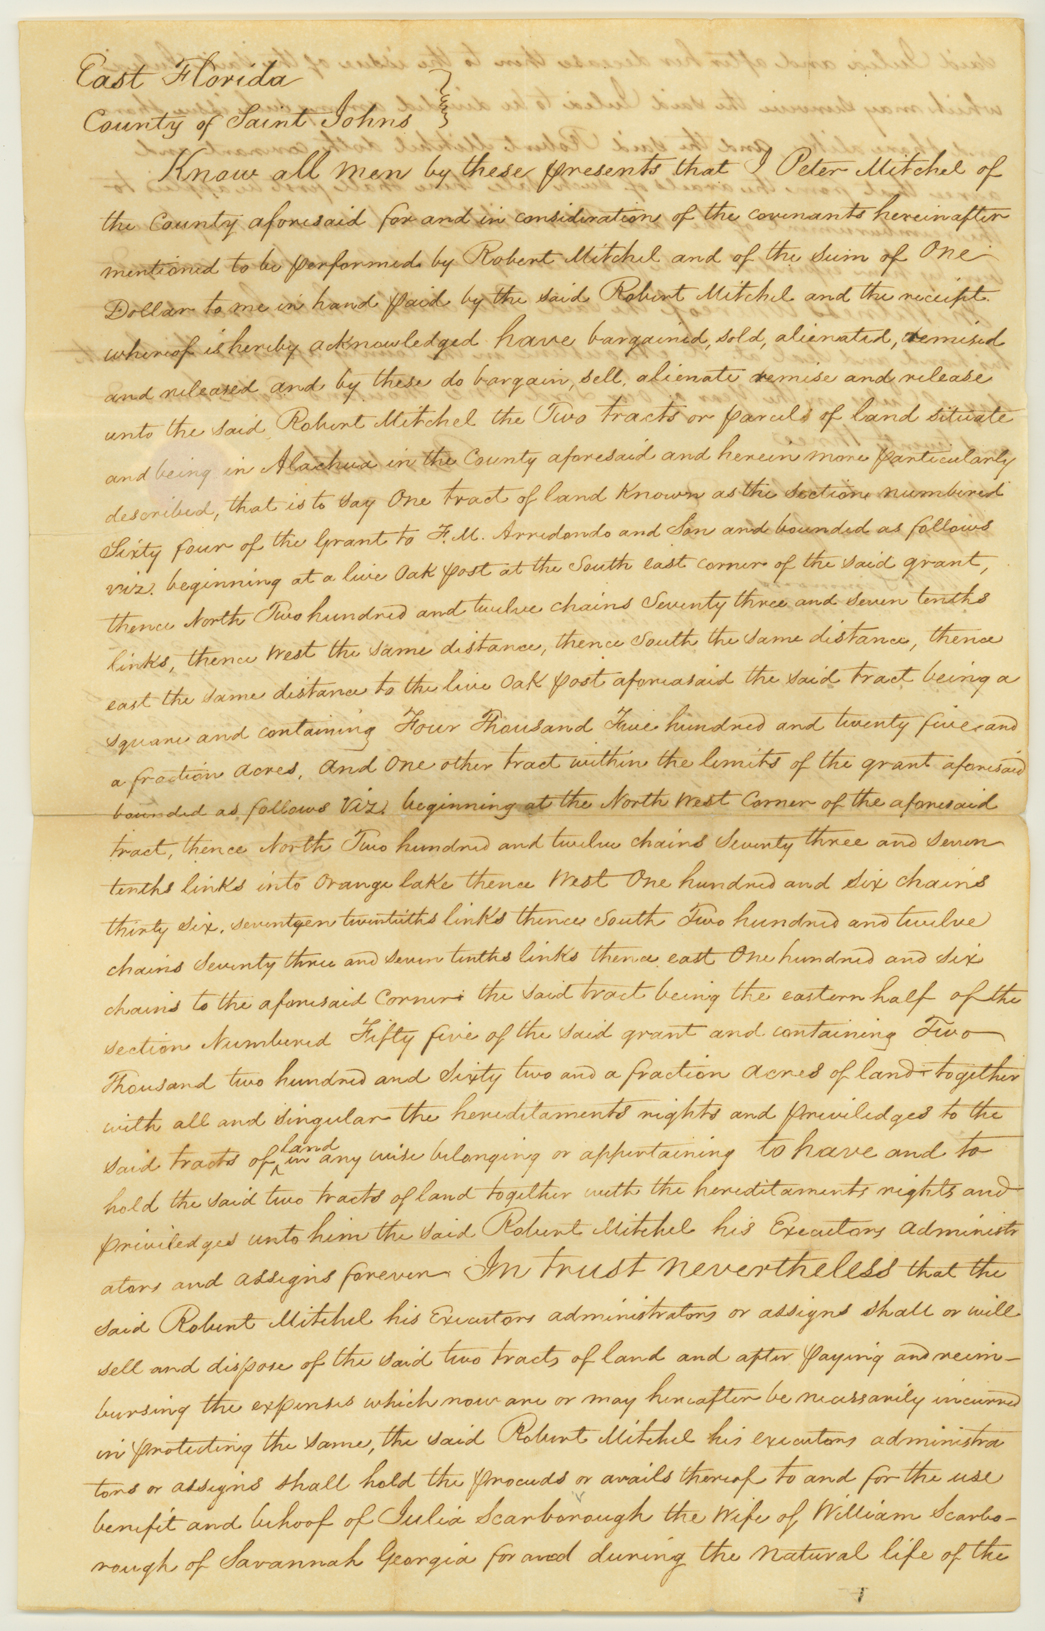 East Florida
County of Saint Johns
Know all men by these presents that I Peter Mitchel of
the County aforesaid for and in consideration of the covenants hereinafter
mentioned to be performed by Robert Mitchel and of the sum of One
Dollar to me in hand paid by the said Robert Mitchel and the receipt
whereof is hereby acknowledged have bargained, sold, alienated, remised
and released and by these do bargain, sell, alienate remise and release
unto the said Robert Mitchel the Two tracts or parcels of land situate
and being in Alachua in the County aforesaid and herein more particularly
described, that is to say One tract of land Known as the section numbered
Sixty four of the Grant to F. M. Arredondo and Son and bounded as follows
viz. beginning at a live Oak post at the South east corner of the said grant,
thence North Two hundred and twelve chains Seventy three and seven tenths
links, thence West the same distance, thence South the same distance, thence
east the same distance to the live Oak post aforeasaid the said tract being a
square and containing Four Thousand Five hundred and twenty five and
a fraction acres. And One other tract within the limits of the grant aforesaid
bounded as follows Viz. beginning at the North West Corner of the aforesaid
tract, thence North Two hundred and twelve chains Seventy three and seven
tenths links into Orange lake thence West One hundred and six chains
thirty six, seventeen twentieths links thence South Two hundred and twelve
chains Seventy three and seven tenths links thence east One hundred and six
chains to the aforesaid Corner the said tract being the eastern half of the
section Numbered Fifty five of the said grant and containing Two
Thousand two hundred and Sixty two and a fraction acres of land together
with all and singular the hereditaments rights and priviledges to the
said tracts of land in any wise belonging or appertaining to have and to
hold the said two tracts of land together with the hereditaments rights and
priviledges unto him the said Robert Mitchel his Executors administr
ators and assigns forever In trust nevertheless that the
said Robert Mitchel his Executors administrators or assigns shall or will
sell and dispose of the said two tracts of land and after paying and reim-
bursing the expenses which now are or may hereafter be necessarily incurred
in protecting the same, the said Robert Mitchel his executors administra
tors or assigns shall hold the proceeds or avails thereof to and for the use
benefit and behoof of Julia Scarborough the Wife of William Scarbo-
rough of Savannah Georgia for and during the natural life of the